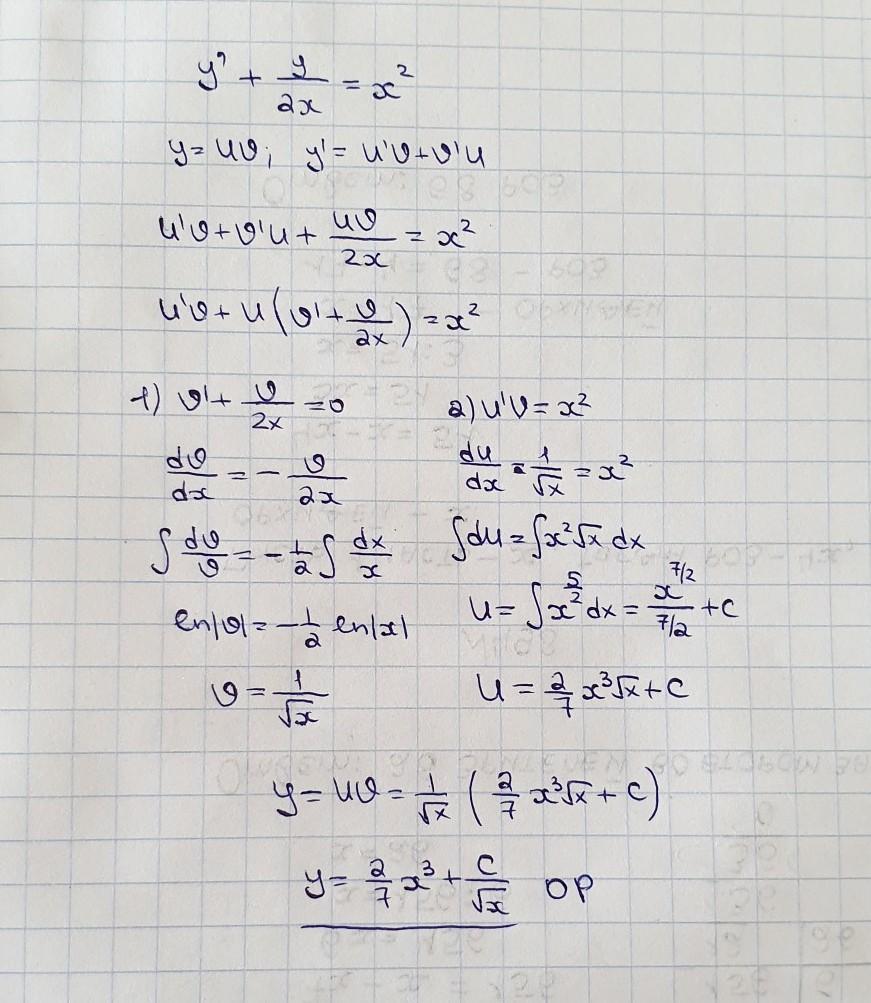 y' + y/2x = x²
y = uv; y' = u'v + v'u
u'v + v'u + uv/2x = x²
u'v + u(v' + v/2x) = x²
1) v' + v/2x = 0
dv/dx = - v/2x
∫ dv/v = - 1/2 ∫ dx/x
ln|v| = - 1/2 ln|x|
v = 1/√x
2) u'v = x²
du/dx · 1/√x = x²
∫du = ∫x²√x dx
u = ∫x^(5/2) dx = x^(7/2)/(7/2) + C
u = 2/7 x³√x + C
y = uv = 1/√x (2/7 x³√x + C)
y = 2/7 x³ + C/√x ОР